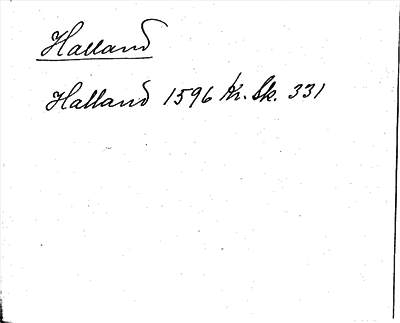 Halland
Halland 1596 Kr. Sk. 331